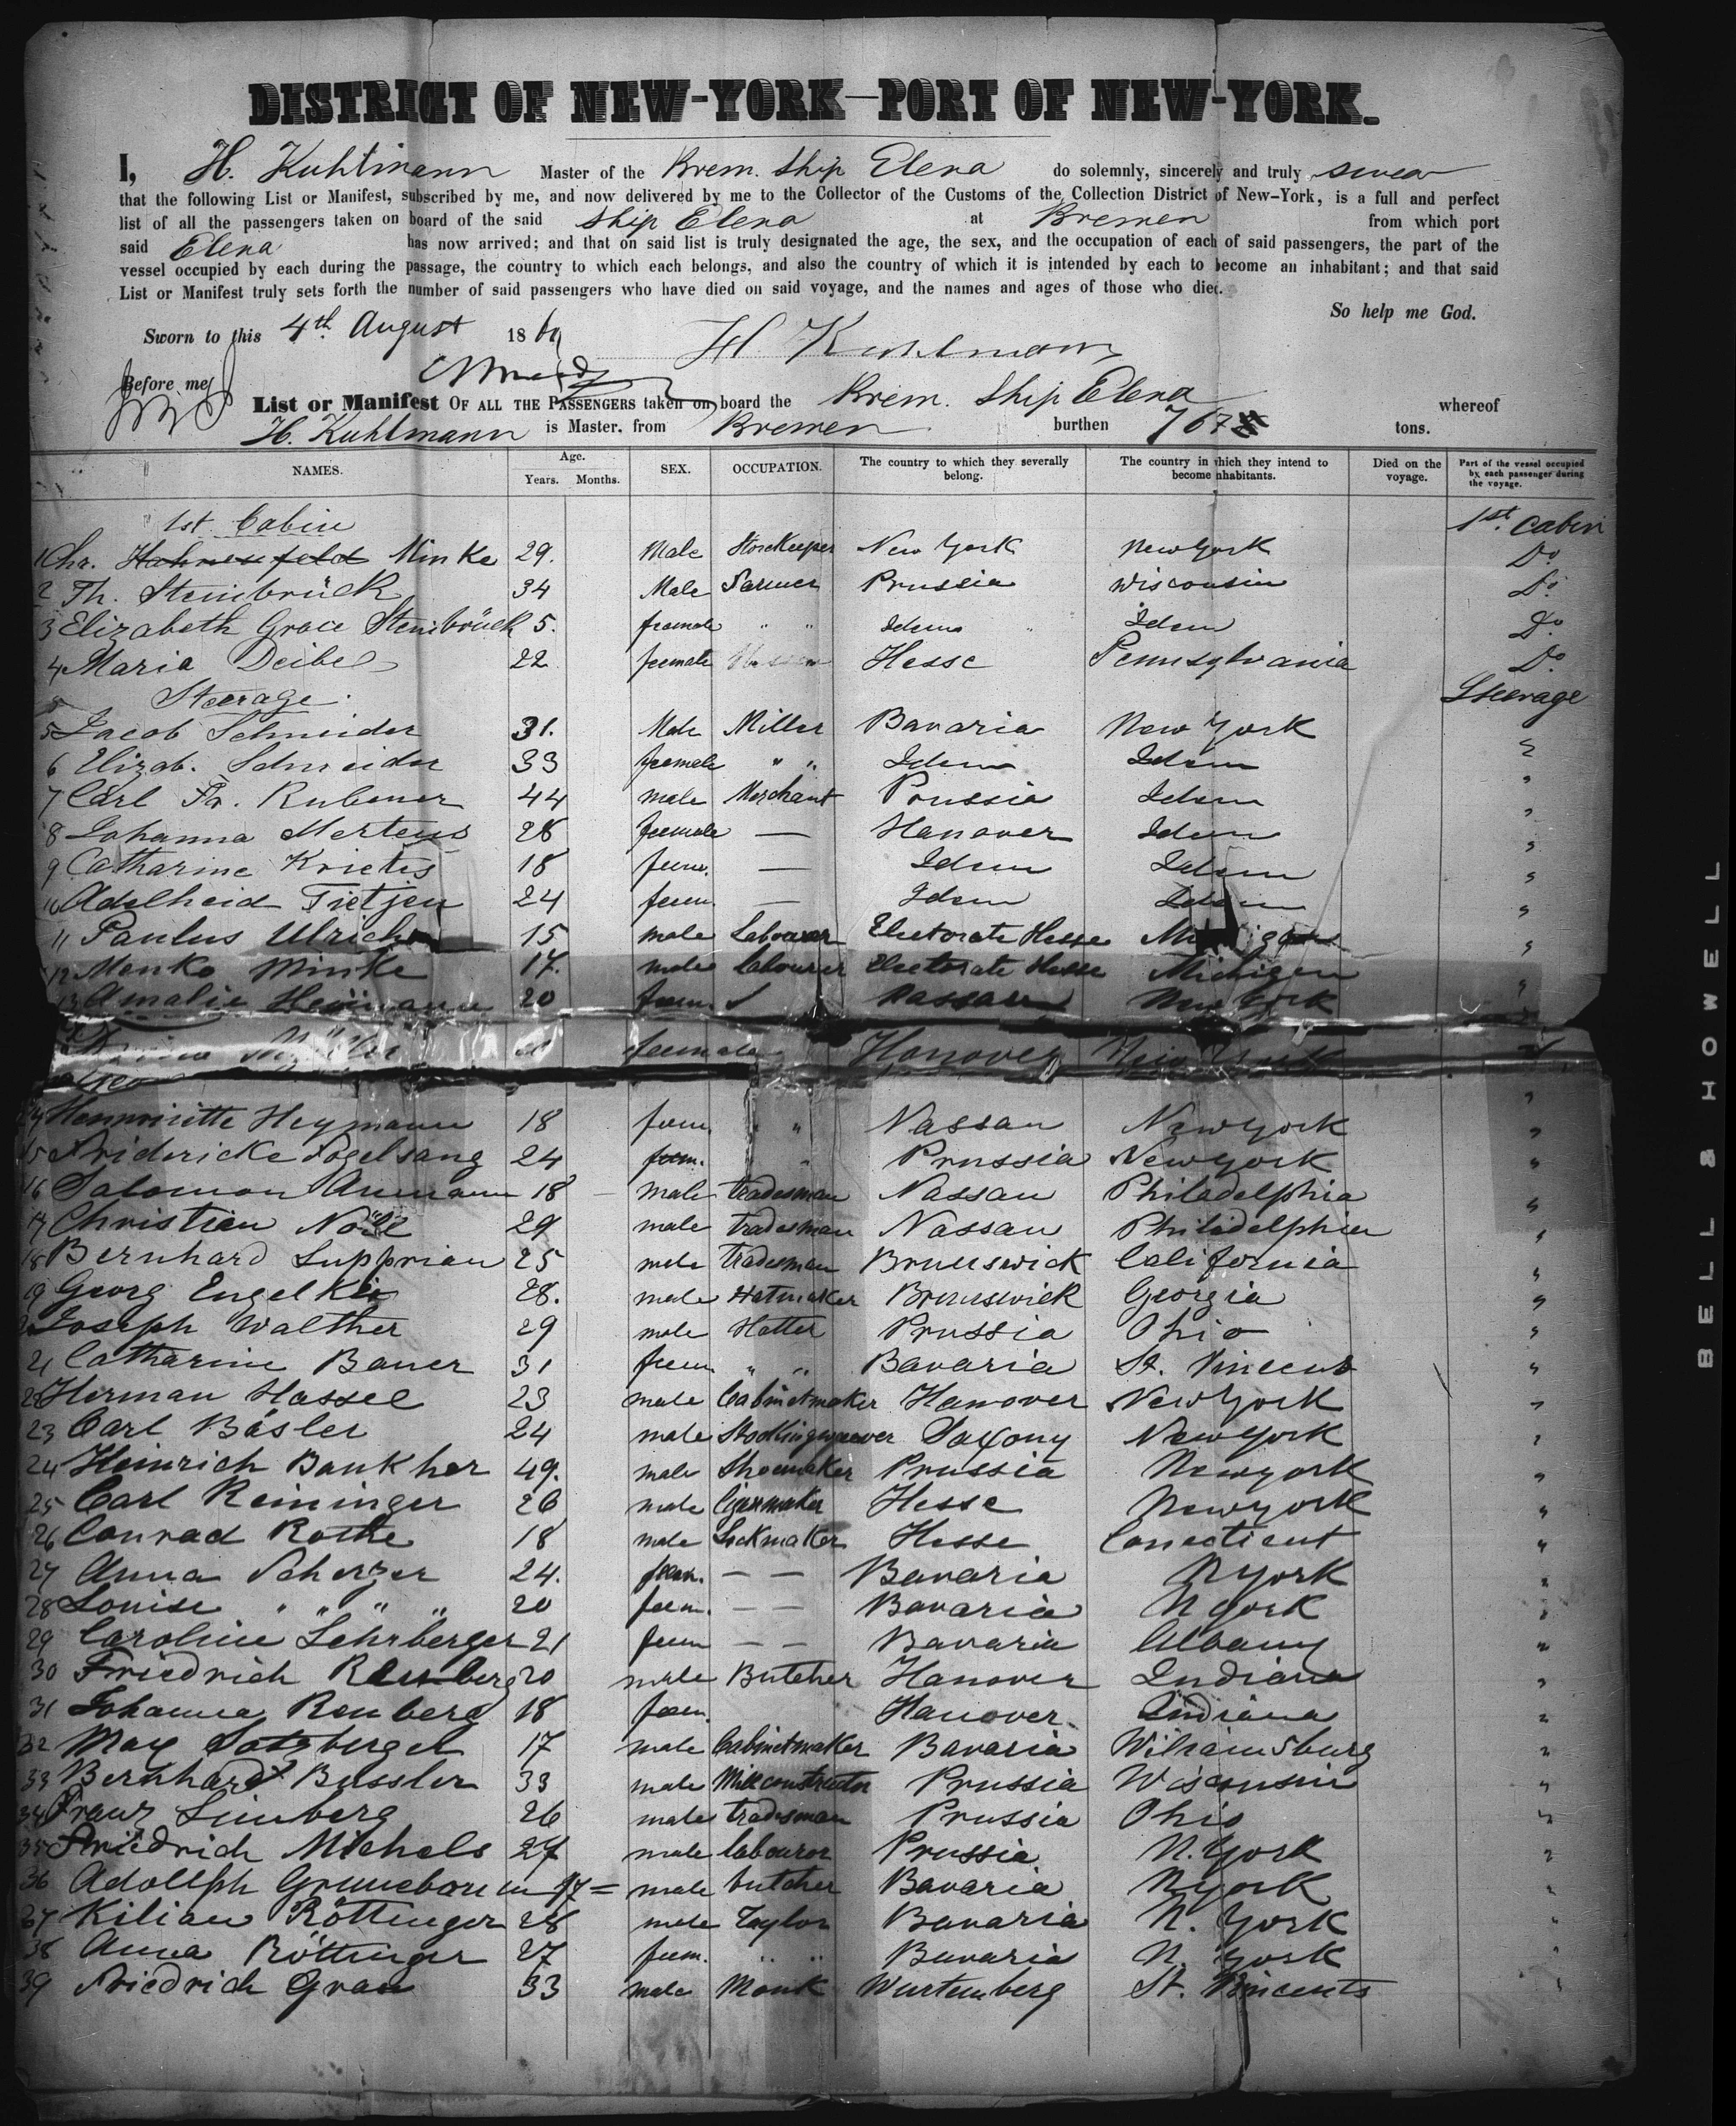 DISTRICT OF NEW-YORK—PORT OF NEW-YORK.
I, H. Kuhlmann Master of the Brem. Ship Elena do solemnly, sincerely and truly swear
that the following List or Manifest, subscribed by me, and now delivered by me to the Collector of the Customs of the Collection District of New-York, is a full and perfect
list of all the passengers taken on board of the said Ship Elena at Bremen from which port
said Elena has now arrived; and that on said list is truly designated the age, the sex, and the occupation of each of said passengers, the part of the
vessel occupied by each during the passage, the country to which each belongs, and also the country of which it is intended by each to become an inhabitant; and that said
List or Manifest truly sets forth the number of said passengers who have died on said voyage, and the names and ages of those who died.
So help me God.
Sworn to this 4th. August 18
H. Kuhlmann
Before me
List or Manifest OF ALL THE PASSENGERS taken on board the Brem. Ship Elena whereof
H. Kuhlmann is Master, from Bremen burthen 767 tons.
NAMES. Age. Years. Months. SEX. OCCUPATION. The country to which they severally belong. The country in which they intend to become inhabitants. Died on the voyage. Part of the vessel occupied by each passenger during the voyage.
1st. Cabin 1st. Cabin
1 Chr. Minke 29. Male Storekeeper New York New York Do.
2 Th. Steinbrück 34 Male Farmer Prussia Wisconsin Do.
3 Elizabeth Grace Steinbrück 5. feemale " " Idem " Idem Do.
4 Maria Deibel 22 feemale Hesse Pennsylvania Do.
Steerage. Steerage
5 Jacob Schneider 31. Male Miller Bavaria New York
6 Elizab. Schneider 33 feemale " " Idem Idem "
7 Carl Fr. Rubener 44 male Merchant Prussia Idem "
8 Johanna Mertens 28 feemale — Hanover Idem "
9 Catharine Krietis 18 feem. — Idem Idem "
10 Adelheid Tietjen 24 feem. — Idem Idem "
11 Paulus Ulrich 15 male Labourer Electorate Hesse "
12 Menko Minke 17. male labourer Electorate Hesse Michigan "
13 Amalie Heymann 20 feem Nassau New York "
Müller feemale Hanover New York "
14 Hennriette Heymann 18 feem. " " Nassau Newyork "
15 Fridericke Vogelsang 24 feem. " Prussia Newyork "
16 Salomon Aumann 18 male tradesman Nassau Philadelphia "
17 Christian 29 male tradesman Nassau Philadelphia "
18 Bernhard Supprian 25 male tradesman Brunswick California "
19 Georg Engelke 28. male Hatmaker Brunswick Georgia "
20 Joseph Walther 29 male Hatter Prussia Ohio "
21 Catharine Bauer 31 feem " " Bavaria St. Vincent "
22 Herman Hassel 23 male Cabinetmaker Hanover Newyork "
23 Carl Bäsler 24 male Stockingweaver Saxony Newyork "
24 Heinrich Bankher 49. male Shoemaker Prussia Newyork "
25 Carl Reininger 26 male Cigarmaker Hesse Newyork "
26 Conrad Rothe 18 male Lockmaker Hesse Conecticut "
27 Anna Scherzer 24. feem. — — Bavaria NYork "
28 Louise " " " " 20 feem. — — Bavaria NYork "
29 Caroline Lehrberger 21 feem — — Bavaria Albany "
30 Friedrich Remberg 20 male Butcher Hanover Indiana "
31 Johanne Remberg 18 feem. Hanover. Indiana "
32 Max 17 male Cabinetmaker Bavaria Williamsburg "
33 Bernhard Bussler 33 male Millconstructor Prussia Wisconsin "
34 Franz Limberg 26 male tradesman Prussia Ohio "
35 Friedrich Michels 27 male labouror Prussia N.York "
36 Adollph Grunebaum 17 = male butcher Bavaria NYork "
37 Kilian Röttinger 28 male Taylor Bavaria N. York "
38 Anna Röttinger 27 feem. " " Bavaria N. York "
39 Friedrich Grau 33 male Monk Wurtemberg St. Vincents "
BELL & HOWELL